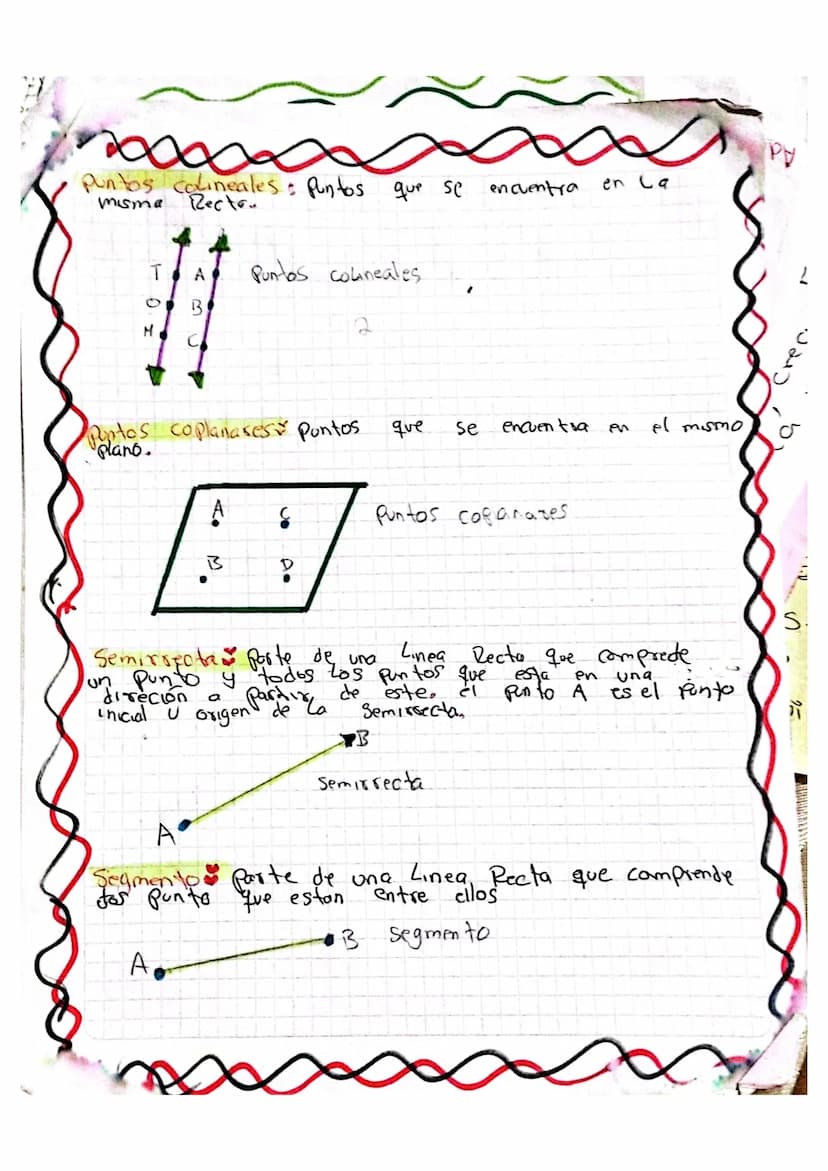 Puntos colineales: Puntos que se encuentra en La
misma Recta.
T A Puntos colineales
O B
M C
2
Puntos coplanares: Puntos que se encuentra en el mismo
plano.
A C Puntos coplanares
B D
Semirrecta: parte de una Linea Recta que comprede
un punto y todos los puntos que esta en una
direción a partir de este. El punto A es el punto
inicial u origen de La Semirrecta.
B
Semirrecta
A
Segmento: parte de una Linea Recta que comprende
dos punto que eston entre ellos
A B Segmento